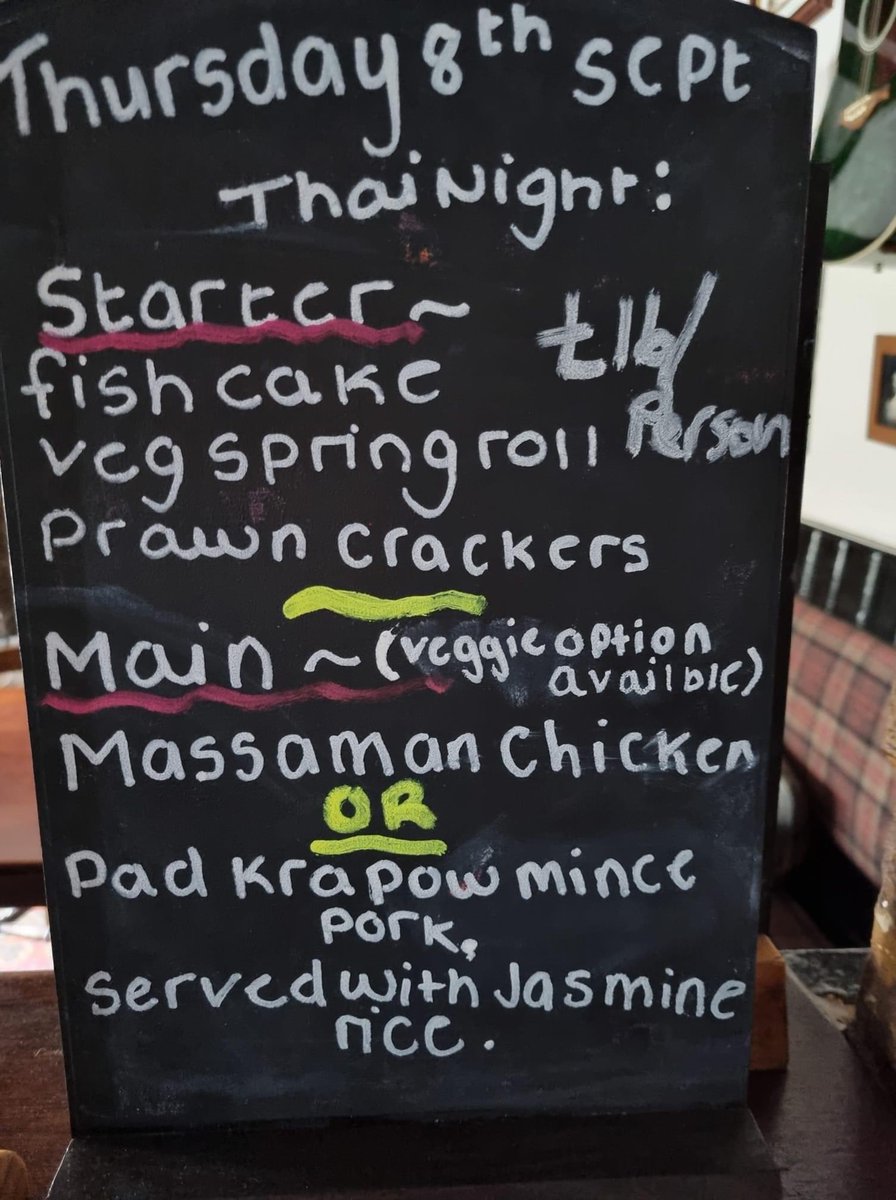 Thursday 8th Sept
Thai Night:
Starter ~
£16/
Person
fish cake
veg spring roll
Prawn crackers
Main ~ (veggie option
availble)
Massaman Chicken
OR
Pad Krapow mince
Pork,
Served with Jasmine
rice.